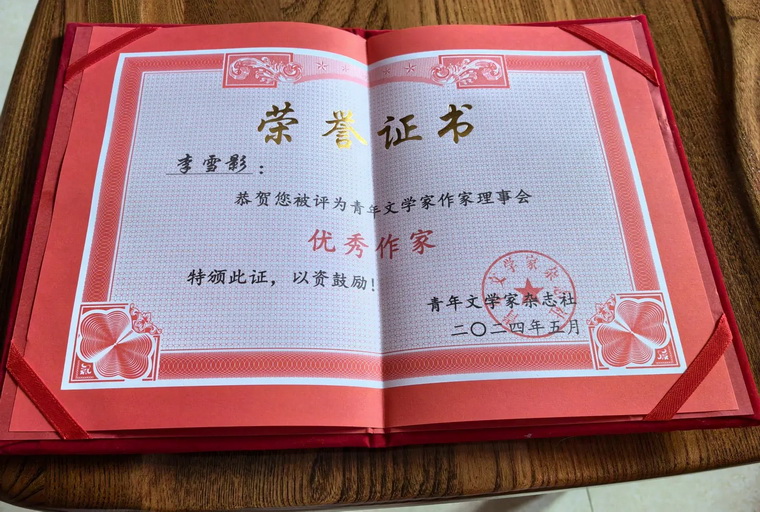 荣誉证书
李雪影：
恭贺您被评为青年文学家作家理事会
优秀作家
特颁此证，以资鼓励！
青年文学家杂志社
二〇二四年五月